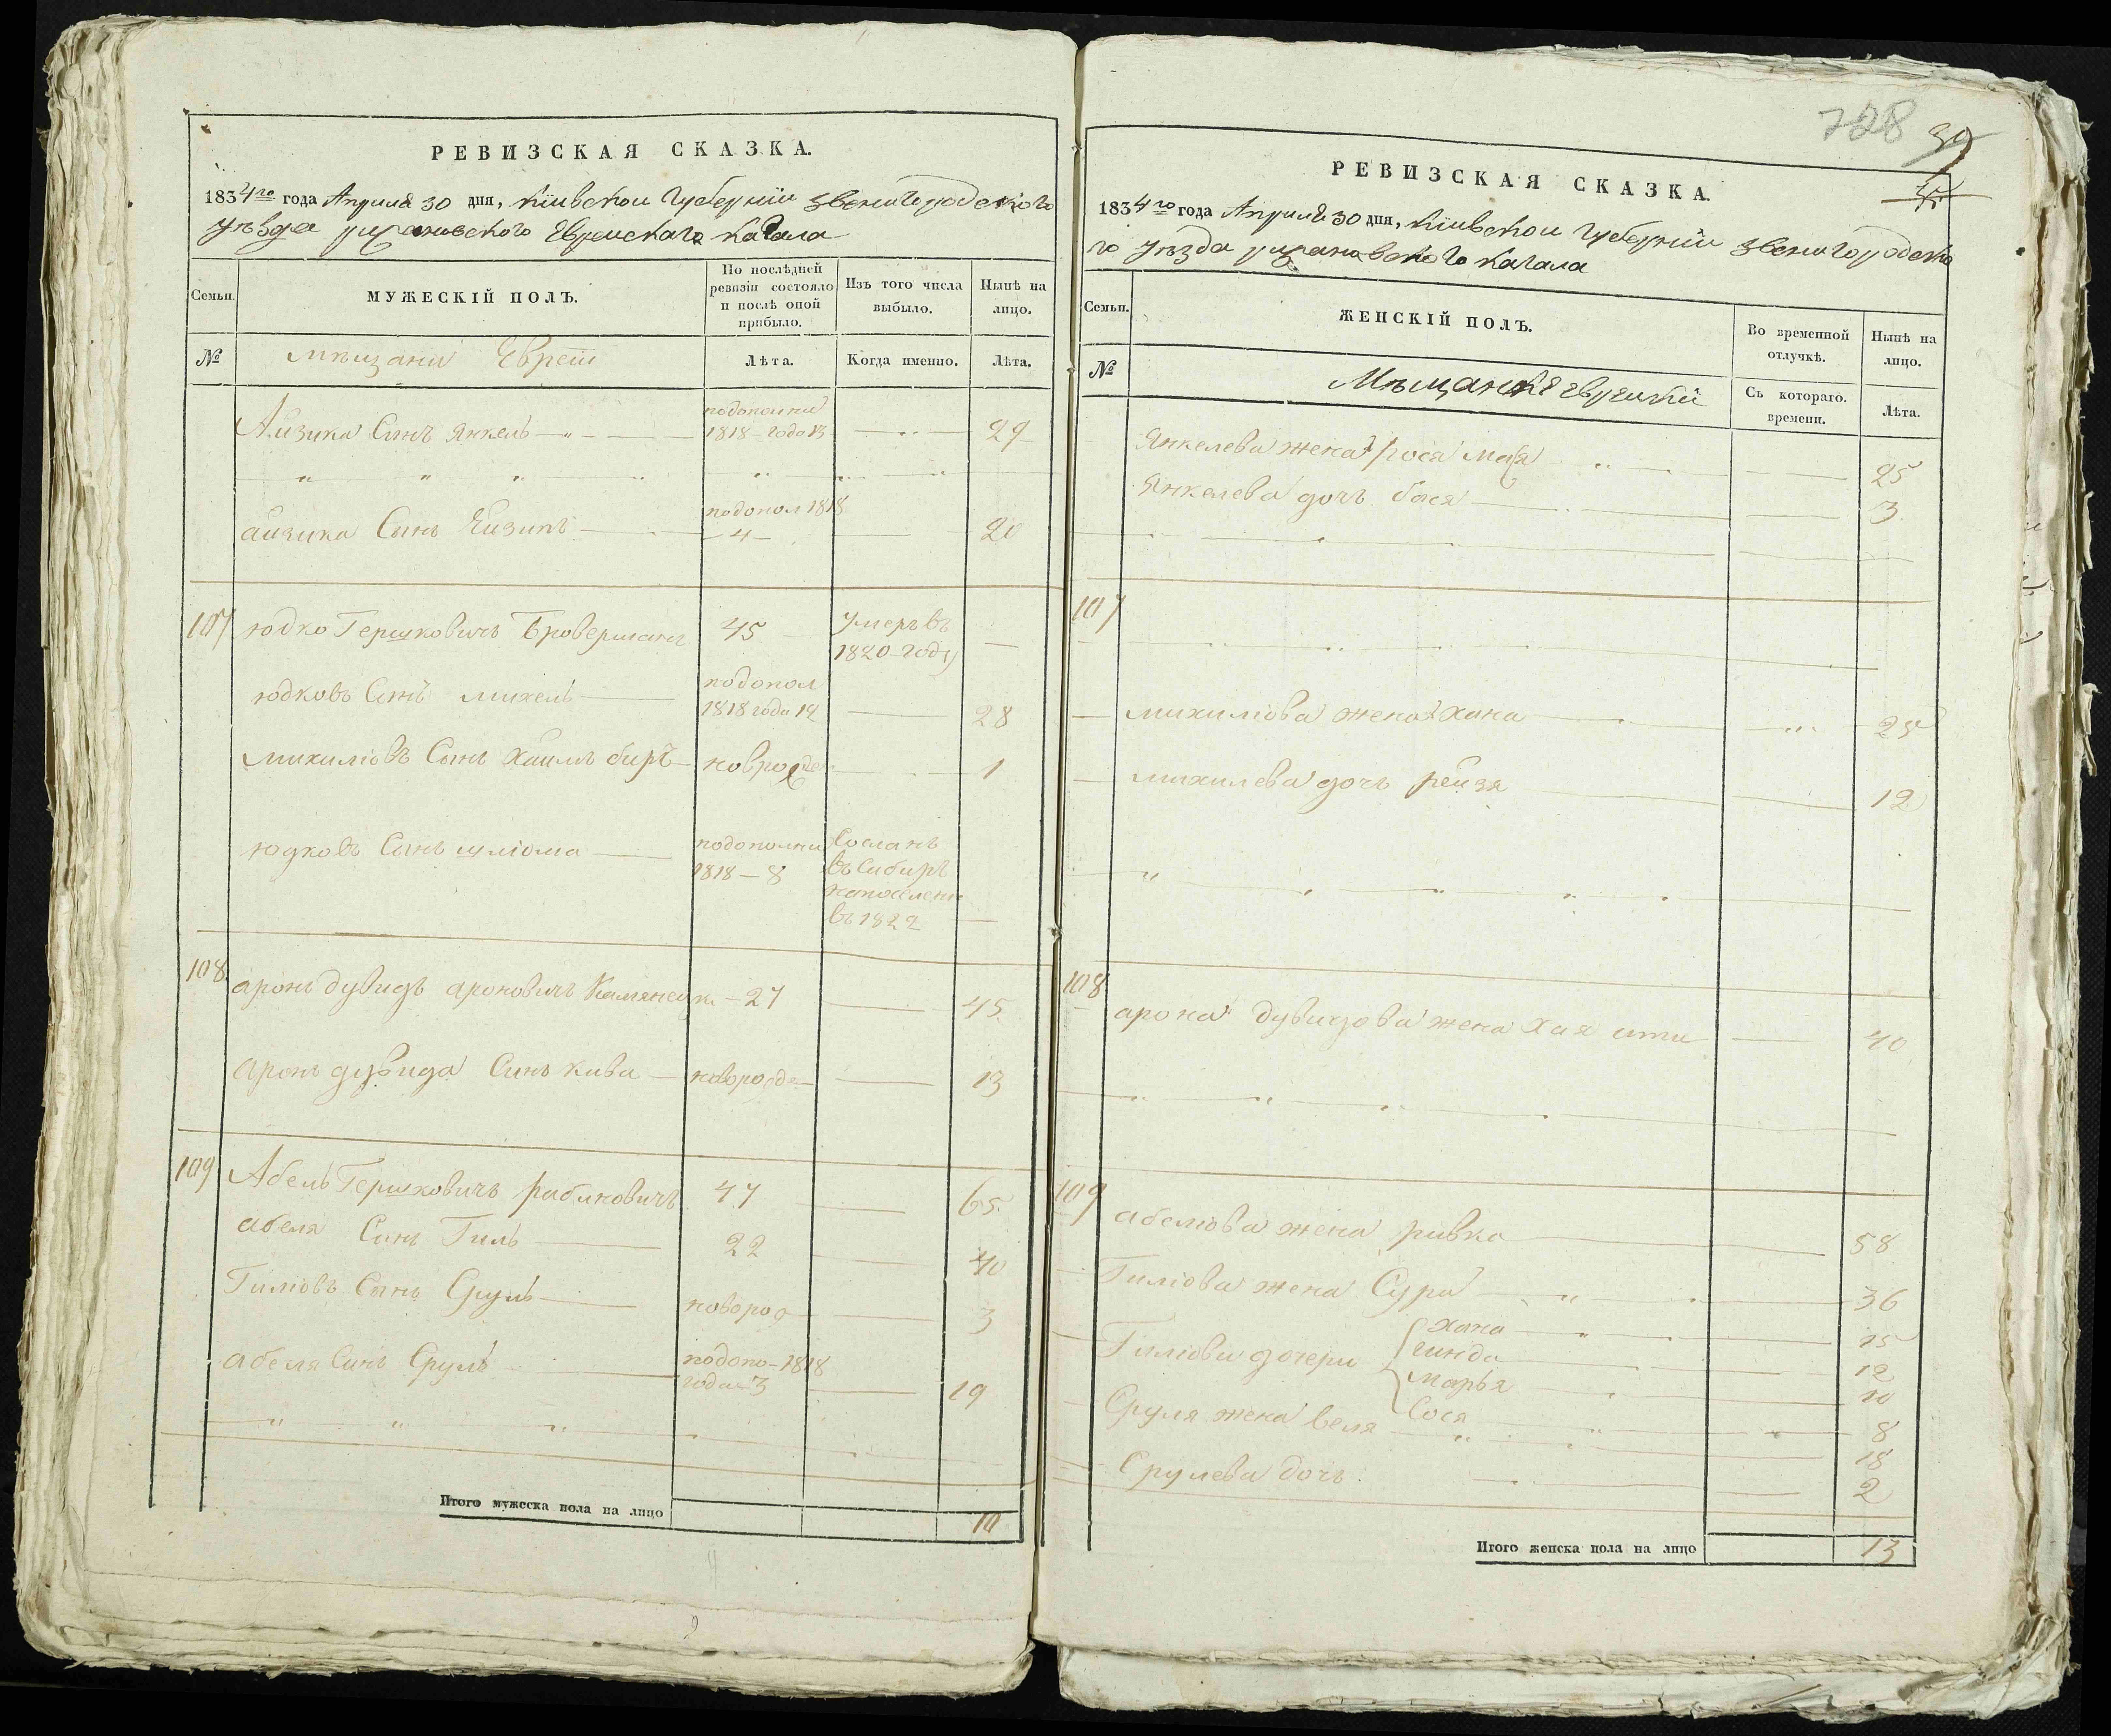 РЕВИЗСКАЯ СКАЗКА.
1834го года Априля 30 дня, Кіивской Губерніи Звенигородского
уѣзда рижановского Еврейского Кагала
Семьи.
МУЖЕСКІЙ ПОЛЪ.
По послѣдней ревизіи состояло и послѣ оной прибыло.
Изъ того числа выбыло.
Нынѣ на лицо.
№
мѣщани Евреи
Лѣта.
Когда именно.
Лѣта.
Айзика Синъ Янкель
подополни
1818 года 13
29
айзика Сынъ Ейзикъ
подопол 1818
4
20
107 юдко Гершковичъ Броверманъ 45
умеръ въ
1820 году
юдковъ Синъ михель
подопол
1818 года 12
28
михиліовъ Сынъ Хаимъ беръ новрожден 1
юдковъ Синъ шліома
подополни
1818 — 8
Сосланъ
въ Сибирь
на поселени
въ 1822
108 аронъ дувидъ ароновичъ Камянецки 27 45
аронъ дувида Синъ кива новорожде 13
109 Абель Гершковичъ рабиновичъ 47 65
абеля Синъ Гиль 22 40
Гиліовъ Синъ Сруль новорож 3
абеля Синъ Сруль
подопо 1818
года 3
19
Итого мужеска пола на лицо 10
728
39
РЕВИЗСКАЯ СКАЗКА.
1834го года Априля 30 дня, Кіивской Губерніи Звенигородско
го уѣзда рижановского Кагала
Семьи.
ЖЕНСКІЙ ПОЛЪ.
Во временной отлучкѣ.
Нынѣ на лицо.
№
Мѣщанки еврейки
Съ котораго. времени.
Лѣта.
Янкелева жена рося 25
Янкелева дочъ бася 3
107
михиліова жена хана 25
михилева дочъ рейзя 12
108 арона дувидова жена Хая ити 40
109 абеліова жена ривка 58
Гиліова жена Сура 36
Гиліови дочери
хана 15
гинда 12
марья 10
Сося 8
Сруля жена беля 18
Срулева дочъ 2
Итого женска пола на лицо 13